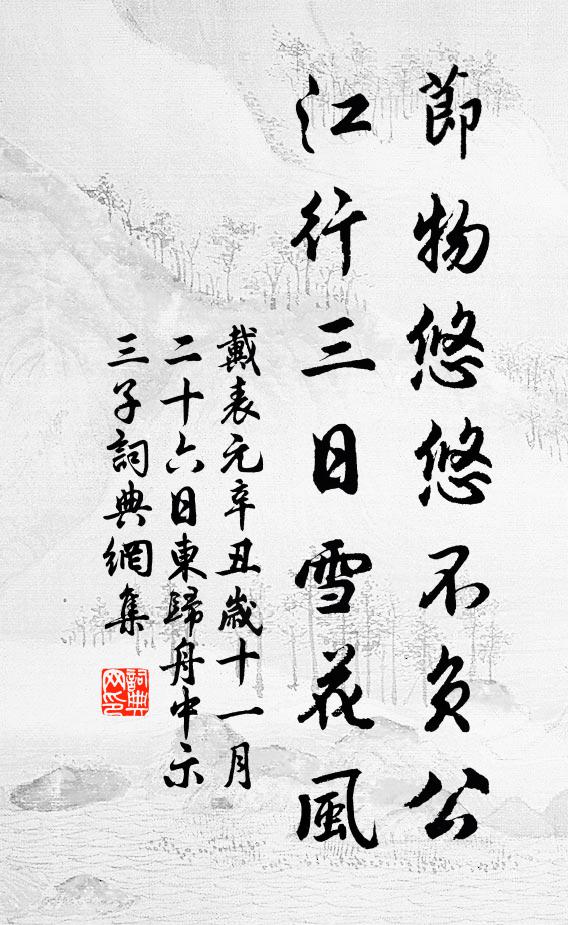 節物悠悠不負公
江行三日雪花風
戴表元辛丑歲十一月
二十六日東歸舟中示
三子詞典網集
詞典
网印